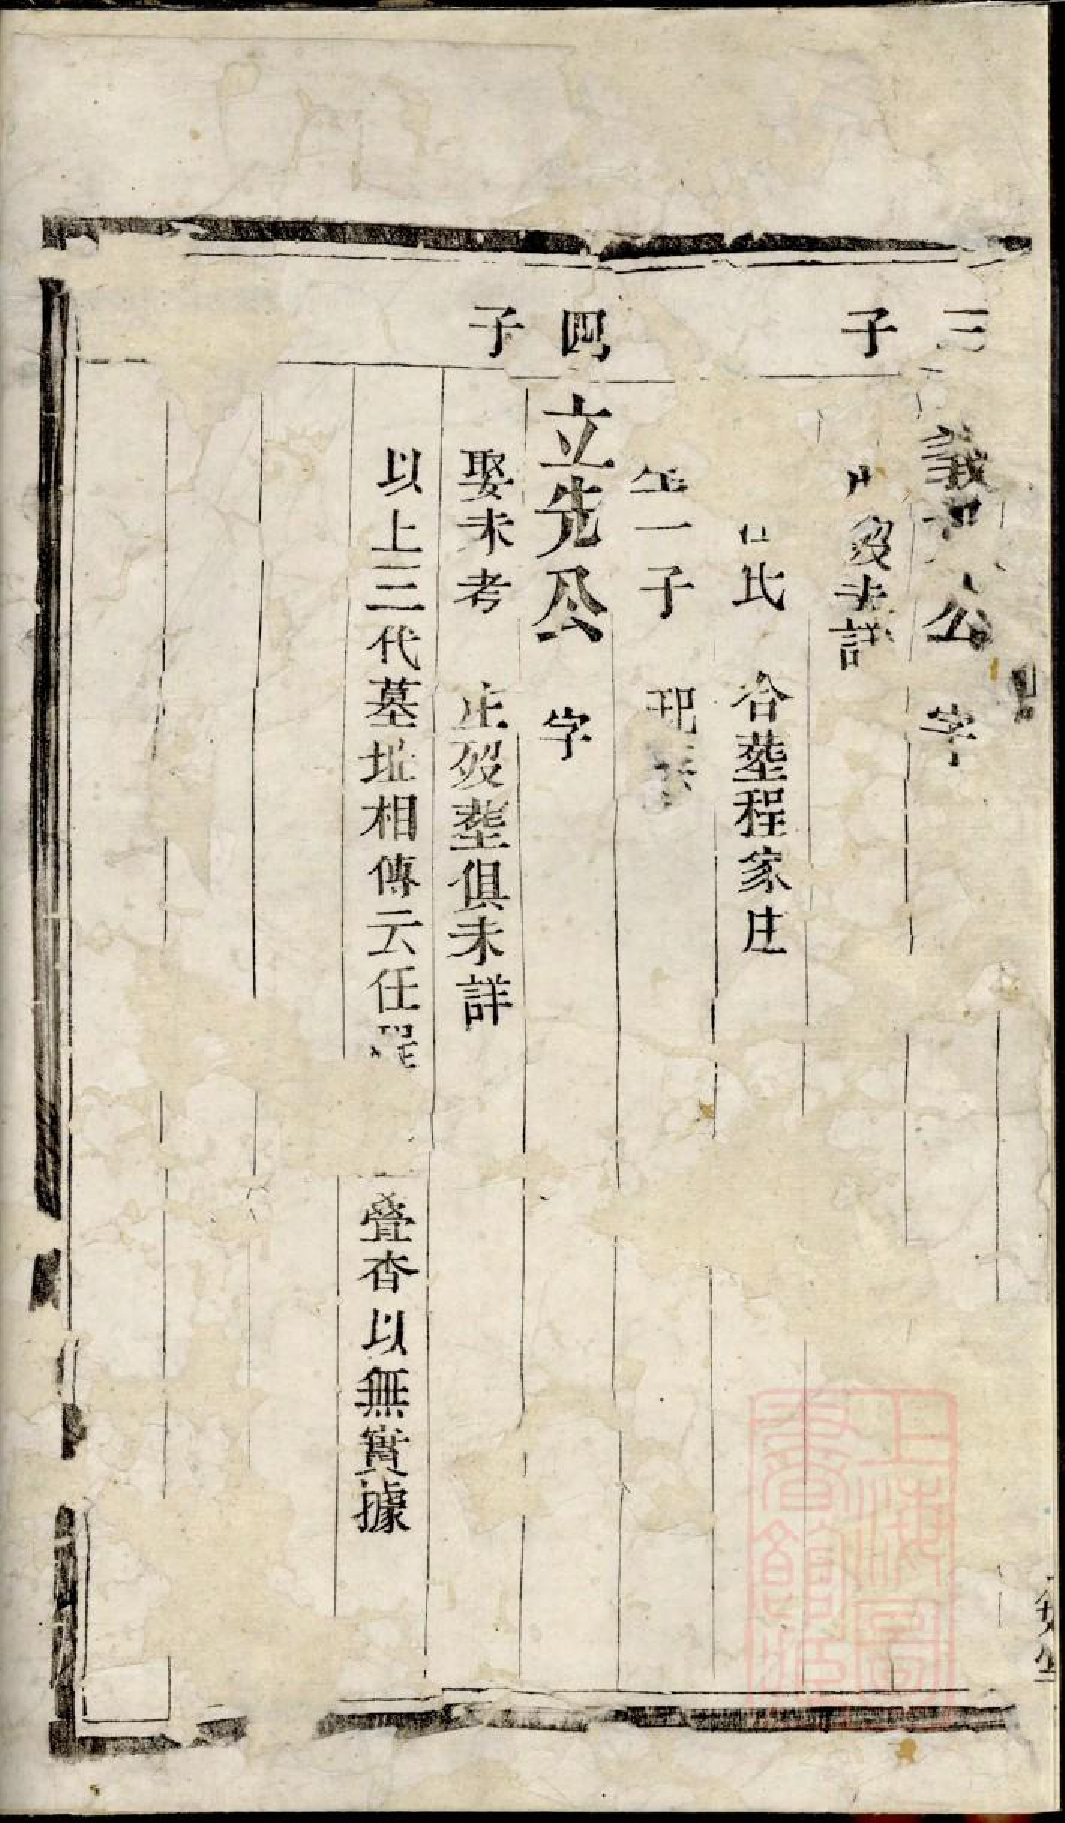 三
義公 字
子
歿未詳
氏 合塟程家庄
生一子
四
立先公 字
子
娶未考 生歿塟俱未詳
以上三代墓址相傳云任程
疊杳以無實據
上海圖書館藏